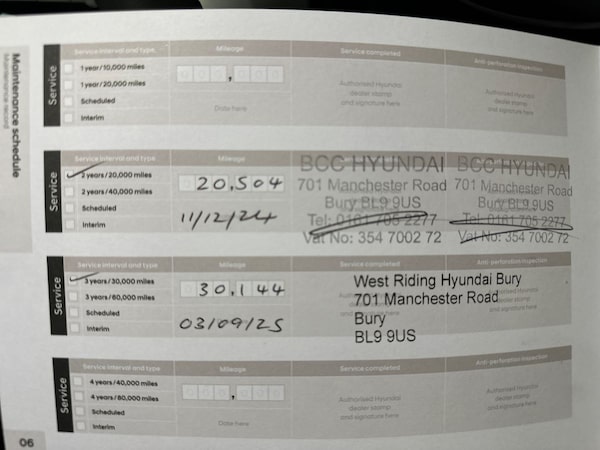 Maintenance schedule
Maintenance record
Service
Service interval and type
Mileage
Service completed
Anti-perforation inspection
1 year/10,000 miles
1 year/20,000 miles
Scheduled
Interim
000,000
Date here
Authorised Hyundai
dealer stamp
and signature here
Authorised Hyundai
dealer stamp
and signature here
Service
Service interval and type
Mileage
2 years/20,000 miles
2 years/40,000 miles
Scheduled
Interim
20,504
11/12/24
BCC HYUNDAI
701 Manchester Road
Bury BL9 9US
Tel: 0161 705 2277
Vat No: 354 7002 72
BCC HYUNDAI
701 Manchester Road
Bury BL9 9US
Tel: 0161 705 2277
Vat No: 354 7002 72
Service
Service interval and type
Mileage
Service completed
Anti-perforation inspection
3 years/30,000 miles
3 years/60,000 miles
Scheduled
Interim
30,144
03/09/25
West Riding Hyundai Bury
701 Manchester Road
Bury
BL9 9US
Service
Service interval and type
Mileage
Service completed
Anti-perforation inspection
4 years/40,000 miles
4 years/80,000 miles
Scheduled
Interim
000,000
Date here
Authorised Hyundai
dealer stamp
and signature here
Authorised Hyundai
dealer stamp
and signature here
06